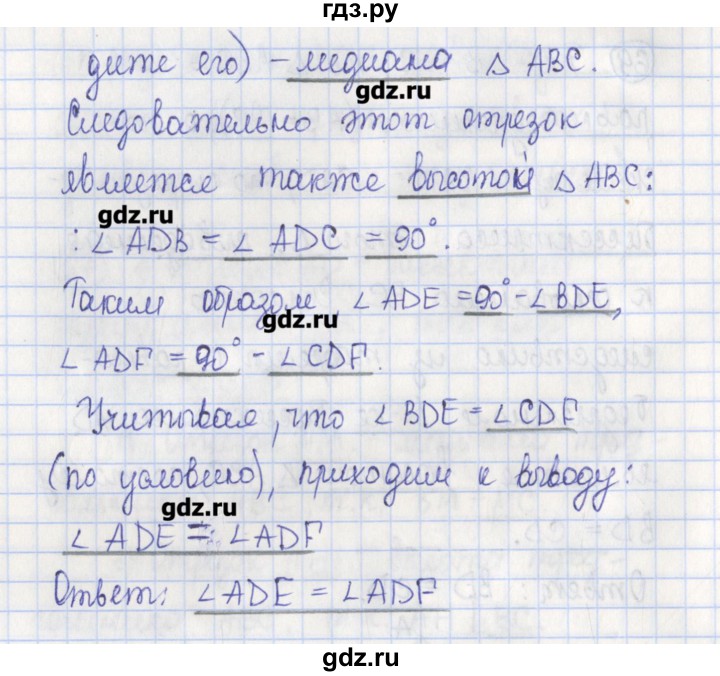 гдз.ру
дите его) - медиана △ ABC.
gdz.ru
Следовательно этот отрезок
является также высотой △ ABC:
gdz.ru
: ∠ ADB = ∠ ADC = 90°.
Таким образом, ∠ ADE = 90° - ∠ BDE,
gdz.ru
∠ ADF = 90° - ∠ CDF.
Учитывая, что ∠ BDE = ∠ CDF
(по условию), приходим к выводу:
gdz.ru
∠ ADE = ∠ ADF
Ответ: ∠ ADE = ∠ ADF
gdz.ru